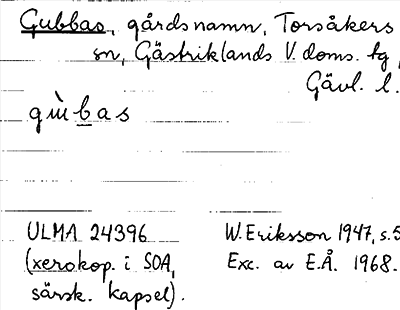 Gubbas, gårdsnamn, Torsåkers
sn, Gästriklands V. doms. tg,
Gävl. l.
gùbas
ULMA 24396
(xerokop. i SOA,
särsk. kapsel).
W. Eriksson 1947, s. 5
Exc. av E.Å. 1968.